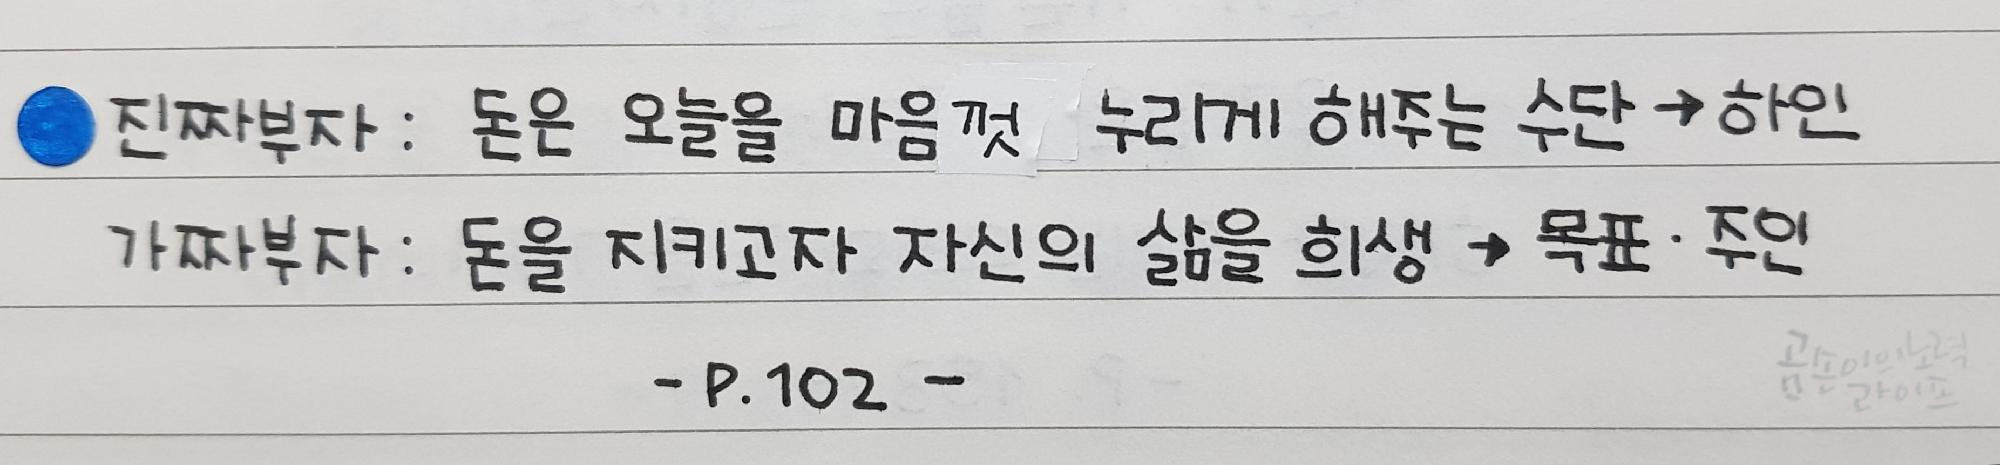 진짜부자 : 돈은 오늘을 마음껏 누리게 해주는 수단 → 하인
가짜부자 : 돈을 지키고자 자신의 삶을 희생 → 목표 · 주인
- P.102 -
곰손이의노력
라이프